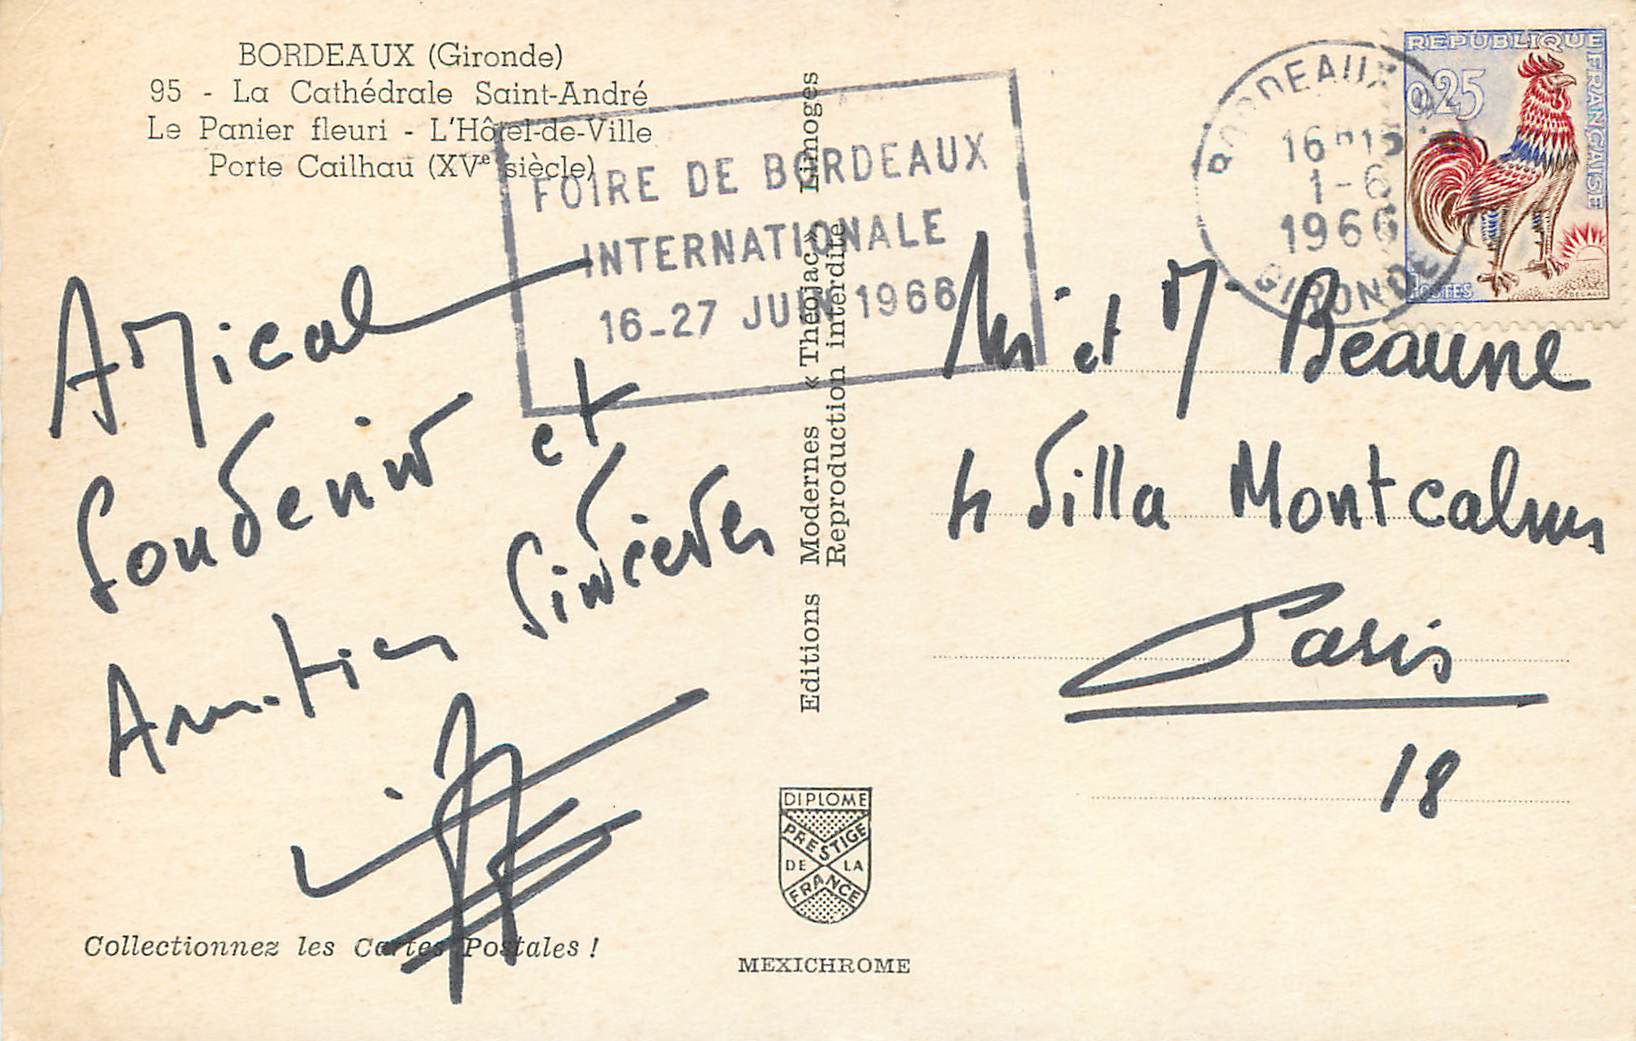 BORDEAUX (Gironde)
95 - La Cathédrale Saint-André
Le Panier fleuri - L'Hôtel-de-Ville
Porte Cailhau (XVe siècle)
FOIRE DE BORDEAUX
INTERNATIONALE
16-27 JUIN 1966
BORDEAUX
1-6
1966
GIRONDE
REPUBLIQUE FRANÇAISE
0,25
POSTES
Amical
Souvenir et
Sincères
Amitiés
Editions Modernes « Théojac » Limoges
Reproduction interdite
et M Beaune
4 Villa Montcalm
Paris
18
DIPLOME
PRESTIGE
DE LA
FRANCE
MEXICHROME
Collectionnez les Cartes Postales !